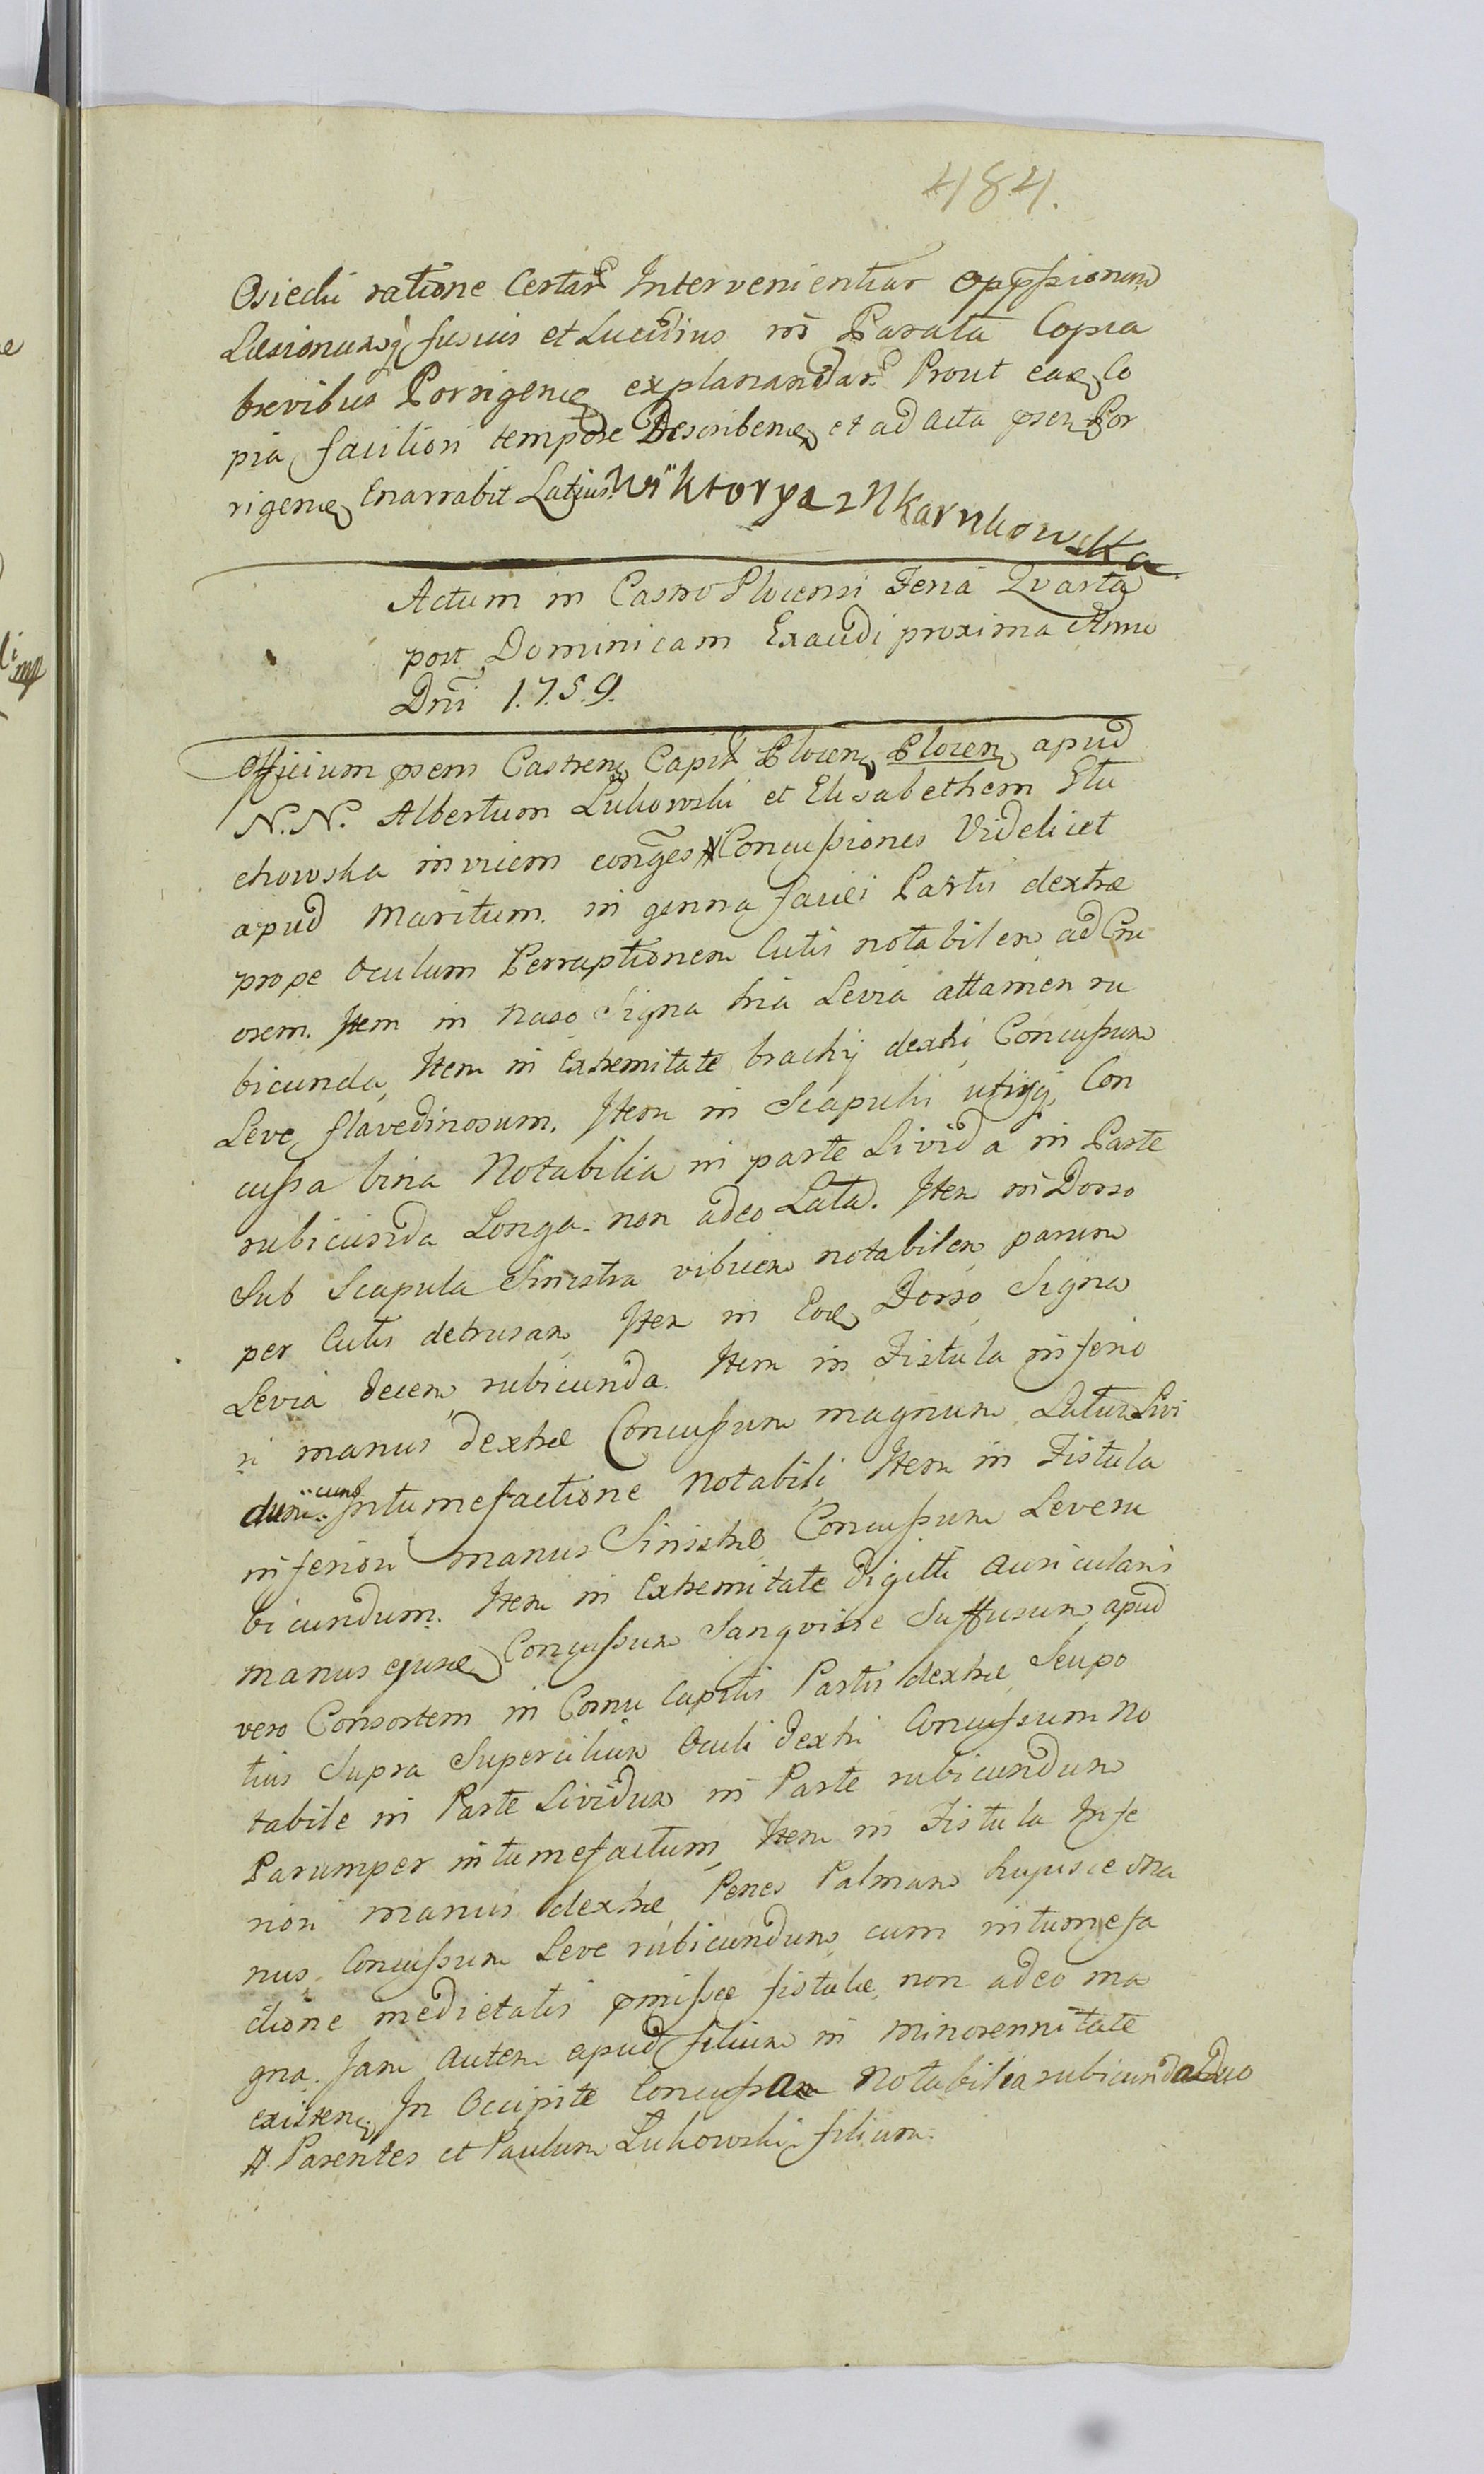 484.
Osiecki ratione Certar Intervenientiar oppssionum
Laesionumq fusius et Lucidius in Parata Copia
brevibus Porrigen explanandar Prout eae Co
pia faciliori tempore Describen et ad acta psen Por
rigen Enarrabit Latius Wiktorya z N Karnkowska
Actum in Castro Plocensi Feria Qvarta
post Dominicam Exaudi proxima Anno
Dni 1.7.5.9.
Officium psens Castren Capit Plocen Plocen apud
N. N. Albertum Lukowski et Elisabetham Glu
chowska invicem conges # Concussiones Videlicet
apud Maritum. in genna faciei Partis dextrae
prope Oculum Perruptionem Cutis notabilem ad Cru
orem. Item in naso Signa tria Levia attamen ru
bicunda, Item in Extremitate brachij dextri Concussum
Leve flavedinosum. Item in Scapulis utrisq Con
cussa bina Notabilia in parte Livida in Parte
rubicunda Longa non adeo Lata. Item in Dorso
Sub Scapula Sinistra vibicem notabilem parum
per Cutis detrusam, Item in Eod Dorso Signa
Levia decem rubicunda. Item in Fistula inferio
ri manus dextrae Concussum magnum Latum Livi
dum cum Intumefactione Notabili, Item in Fistula
inferiori manus Sinistrae Concussum Leve ru
bicundum. Item in Extremitate Digitti Auricularis
manus ejusd Concussum Sangvine Suffusum, apud
vero Consortem in Cornu Capitis Partis dextrae Seu po
tius Supra Supercilium Oculi dextri Concussum No
tabile in Parte Lividum in Parte rubicundum
Parumper intumefactum, Item in Fistula Infe
riori manus dextrae Penes Palmam hujusce ma
nus Concussum Leve rubicundum cum intumefa
ctione medietatis pmissae fistulae non adeo ma
gna. Jam Autem apud filium in minorennitate
existen In Occipite Concussa Notabilia rubicunda Duo
# Parentes et Paulum Lukowski filium.